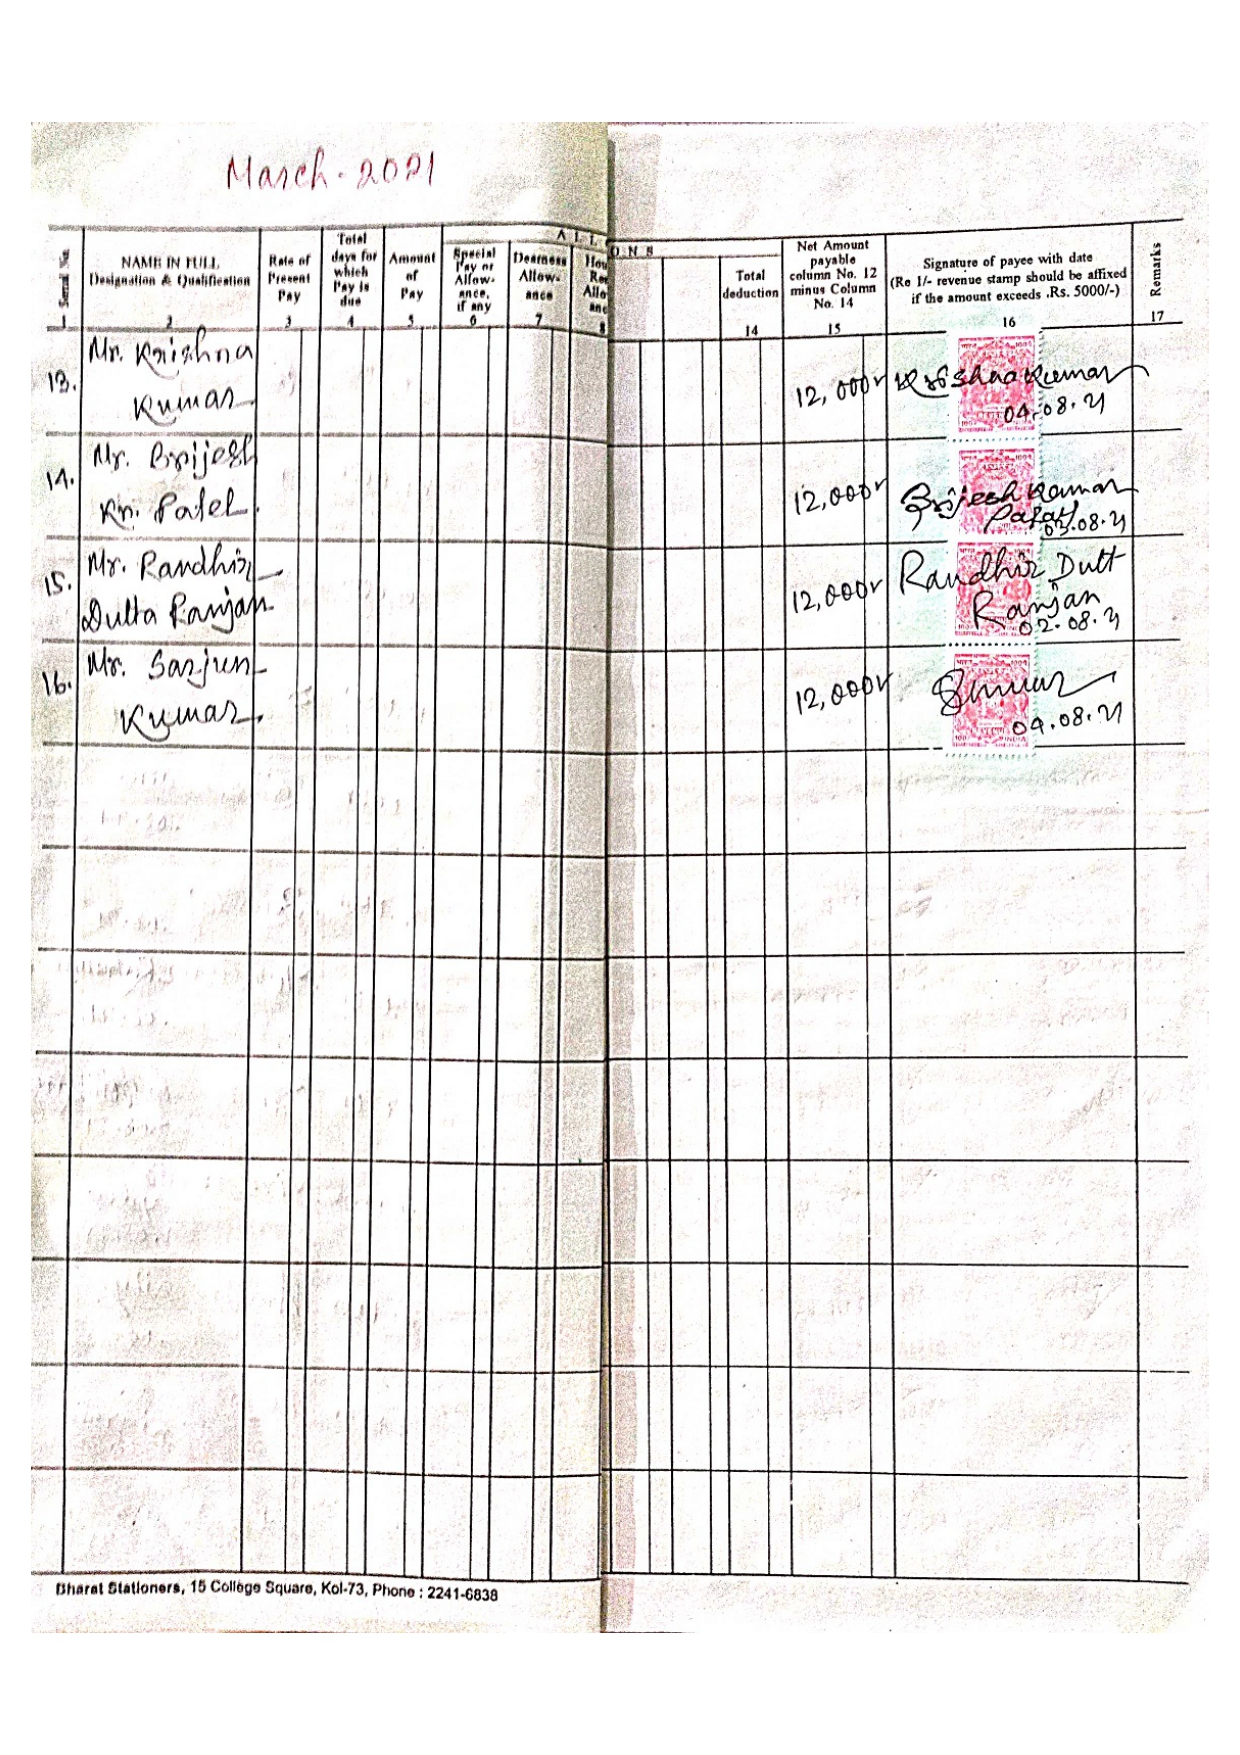 March - 2021
Serial No.
NAME IN FULL
Designation & Qualification
Rate of
Present
Pay
Total
days for
which
Pay is
due
Amount
of
Pay
A L L O
Special
Pay or
Allow-
ance,
if any
Dearness
Allow-
ance
Hou
Ren
Allo
anc
O N S
Total
deduction
Net Amount
payable
column No. 12
minus Column
No. 14
Signature of payee with date
(Re 1/- revenue stamp should be affixed
if the amount exceeds .Rs. 5000/-)
Remarks
1 2 3 4 5 6 7 8 14 15 16 17
13. Mr. Krishna
Kumar
12,000 Krishna Kumar
04.08.21
14. Mr. Brijesh
Kr. Patel.
12,000 Brijesh Kumar
Patel
03.08.21
15. Mr. Randhir
Dutta Ranjan
12,000 Randhir Dutt
Ranjan
02.08.21
16. Mr. Sarjun
Kumar.
12,000
04.08.21
Bharat Stationers, 15 College Square, Kol-73, Phone : 2241-6838